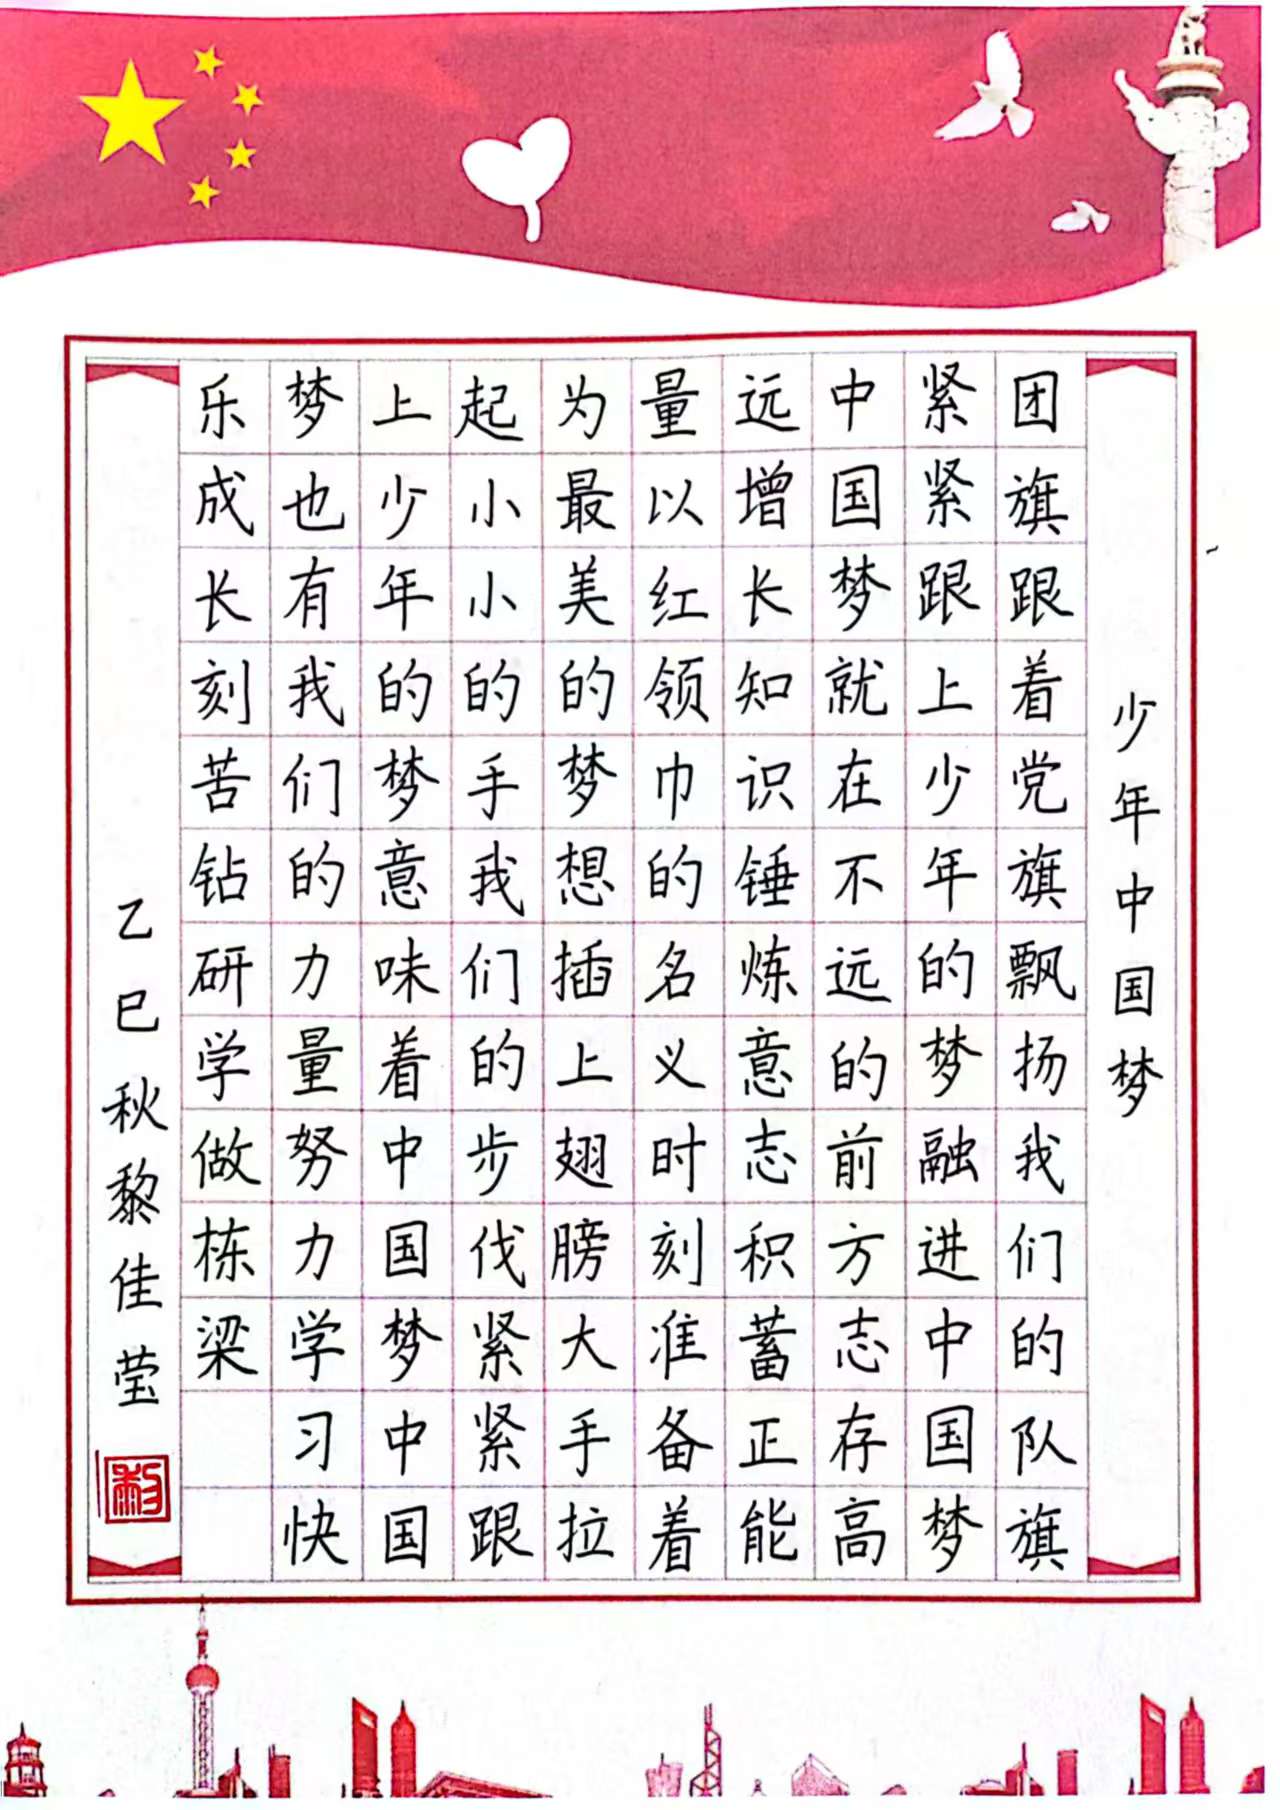 少年中国梦
团旗跟着党旗飘扬我们的队旗
紧紧跟上少年的梦融进中国梦
中国梦就在不远的前方志存高
远增长知识锤炼意志积蓄正能
量以红领巾的名义时刻准备着
为最美的梦想插上翅膀大手拉
起小小的手我们的步伐紧紧跟
上少年的梦意味着中国梦中国
梦也有我们的力量努力学习快
乐成长刻苦钻研学做栋梁
乙巳秋黎佳莹